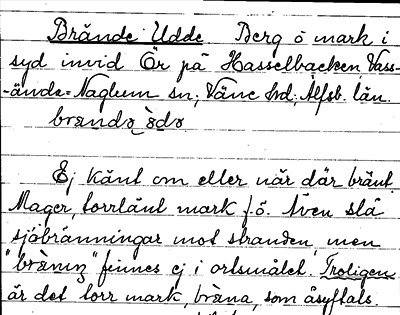 Brände Udde Berg o mark i
syd invid Ör på Hasselbacken, Vass-
-ände-Naglum sn; Väne hd. Älfsb. län.
brandə ədə
Ej känt om eller när där bränt.
Mager, torrlänt mark f.ö. Även slå
sjöbränningar mot stranden, men
"bräning" finnes ej i ortsmålet. Troligen
är det torr mark, bräna, som åsyftals.